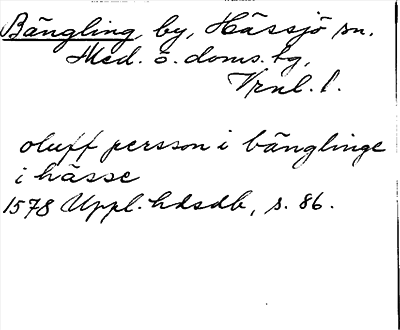 Bängling by, Hässjö sn.
Med. ö. doms. tg,
Vrnl. l.
oluff persson i bänglinge
i hässe
1578 Uppl. hdsdb, s. 86.